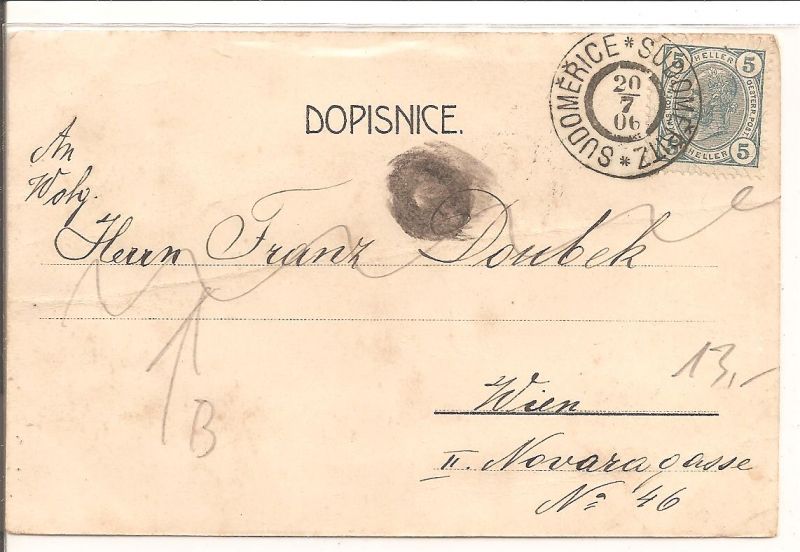 SUDOMĚŘICE * SUDOMĚŘITZ *
20
7
06
5 HELLER 5
OESTERR. POST.
5 HELLER 5
DOPISNICE.
An
Wolg.
Herrn Franz Doubek
13,-
Wien
B
II. Novaragasse
No 46